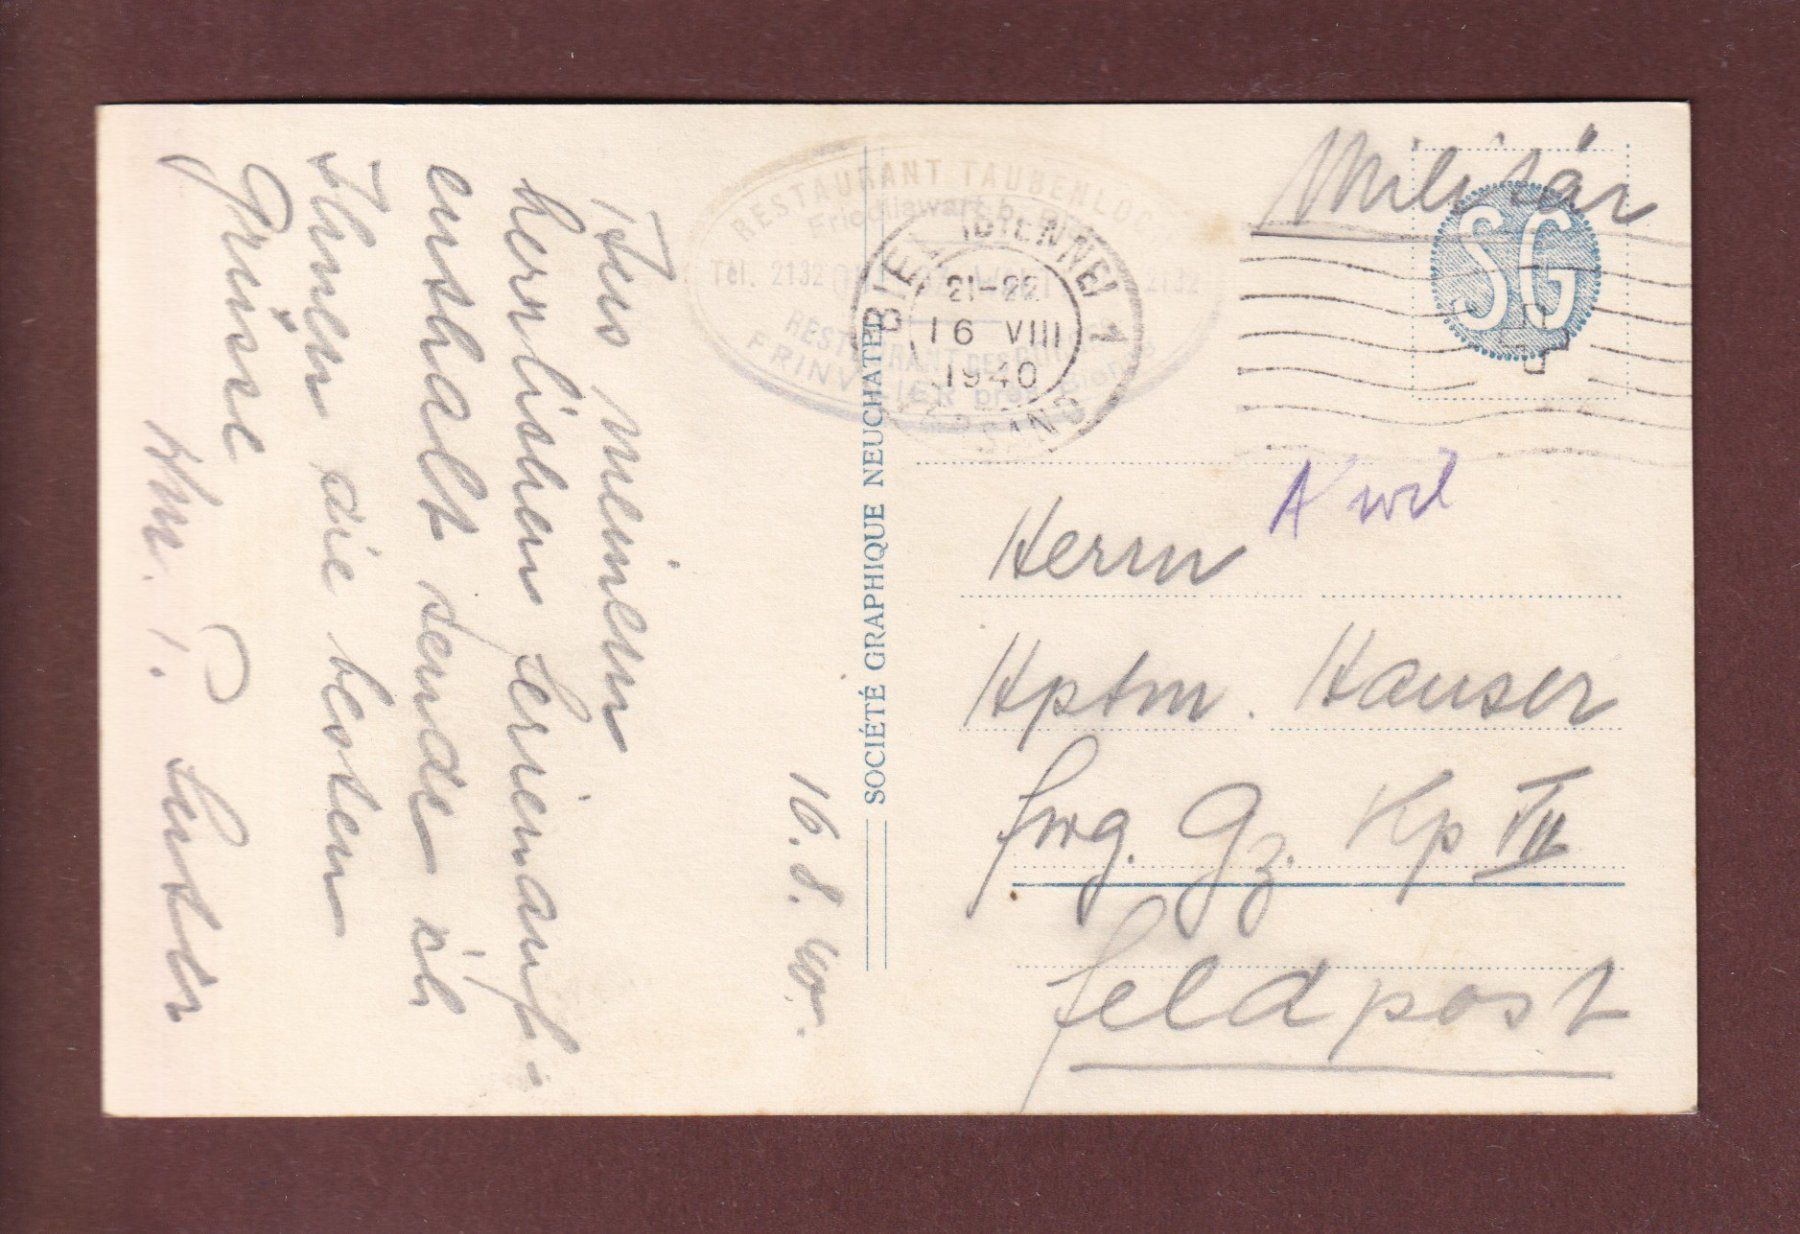 16. 8. 40.
Aus meinem
herrlichen Ferienauf-
enthalt sende ich
Ihnen die besten
Grüsse
P.
RESTAURANT TAUBENLOCH
Friedliswart b. Biel
Tél. 2132
2132
RESTAURANT DES
FRINVILLIER près Bienne
BIEL (BIENNE) 1
21-22
16 VIII
1940
VERSAND
SOCIÉTÉ GRAPHIQUE NEUCHATEL
Militär
SG
Herrn
Hptm. Hauser
Frwg. Gz. Kp VII
Feldpost